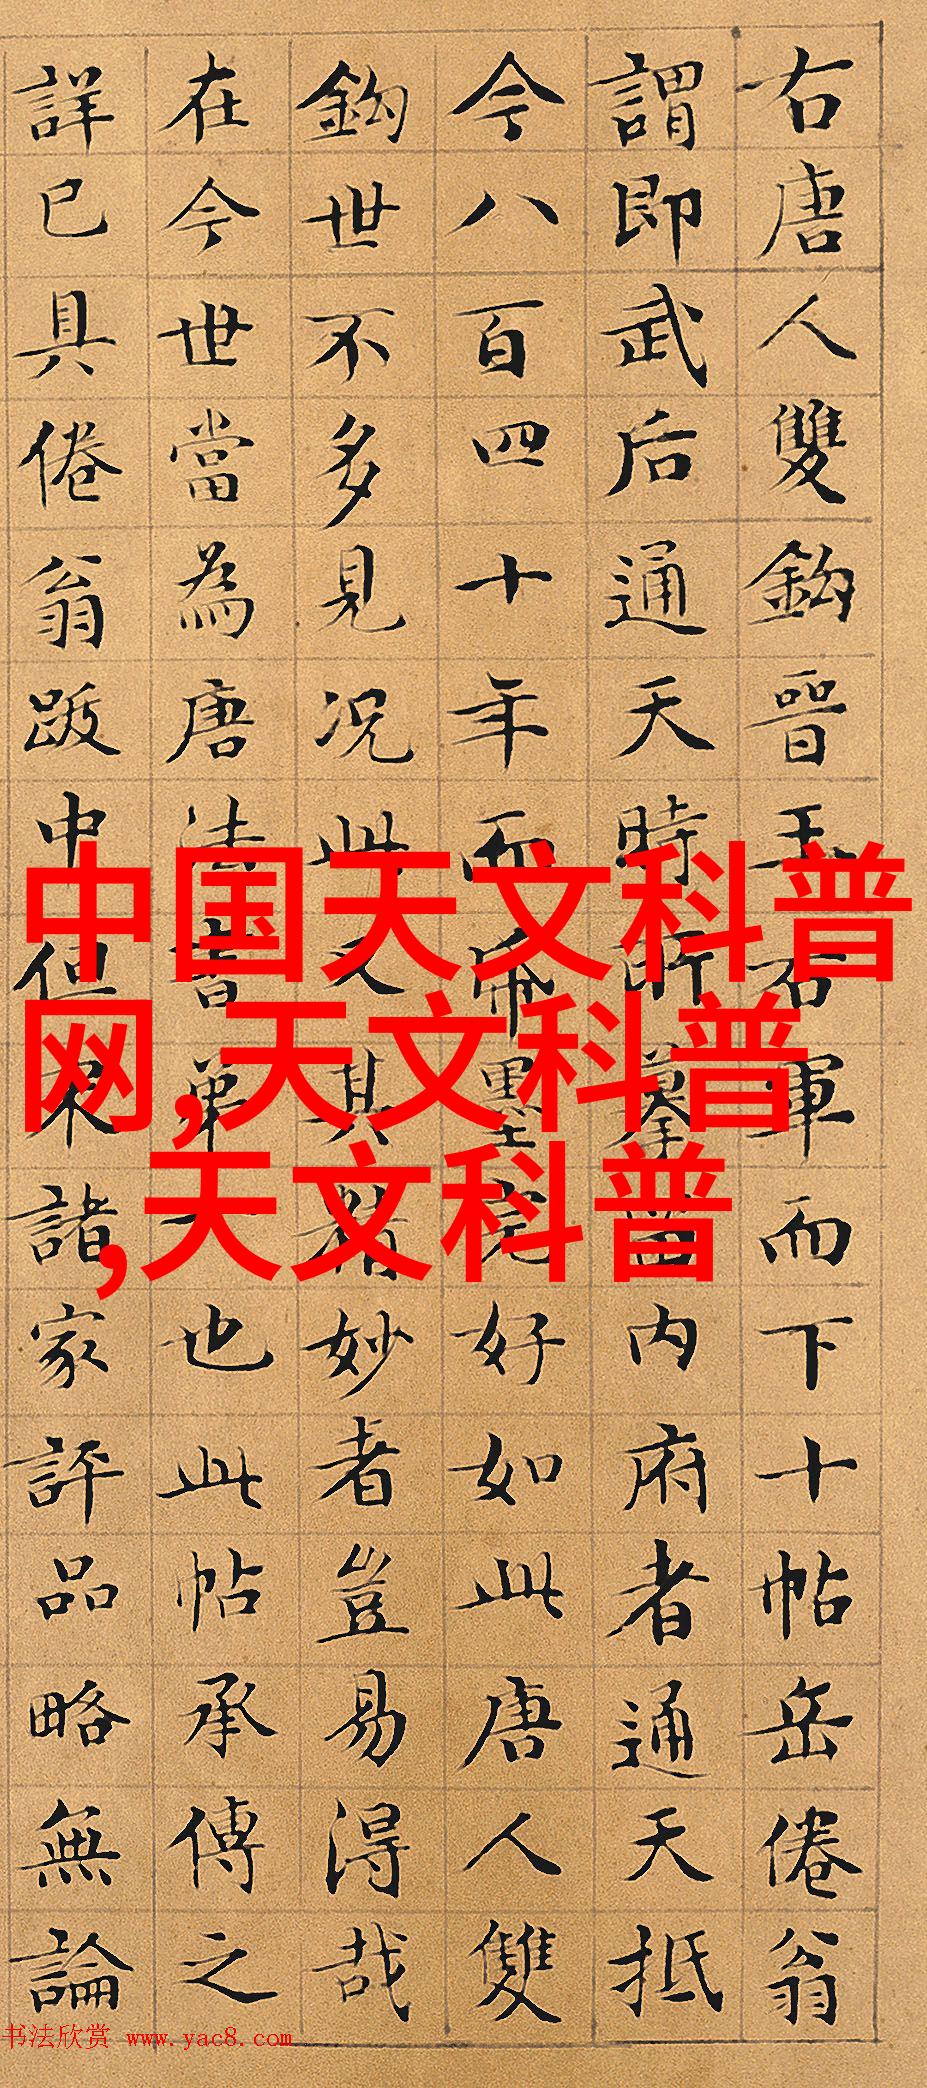 右唐人雙鈎晉王右軍而下十帖岳倦翁
謂即武后通天時所摹留內府者通天抵
今八百四十年而帋墨完好如此唐人雙
鈎世不多見況此又其精妙者豈易得哉
在今世當為唐法書第一也此帖承傳之
詳已具倦翁跋中但諸家評品略無論
中国天文科普
网,天文科普
,天文科普
书法欣赏 www.yac8.com